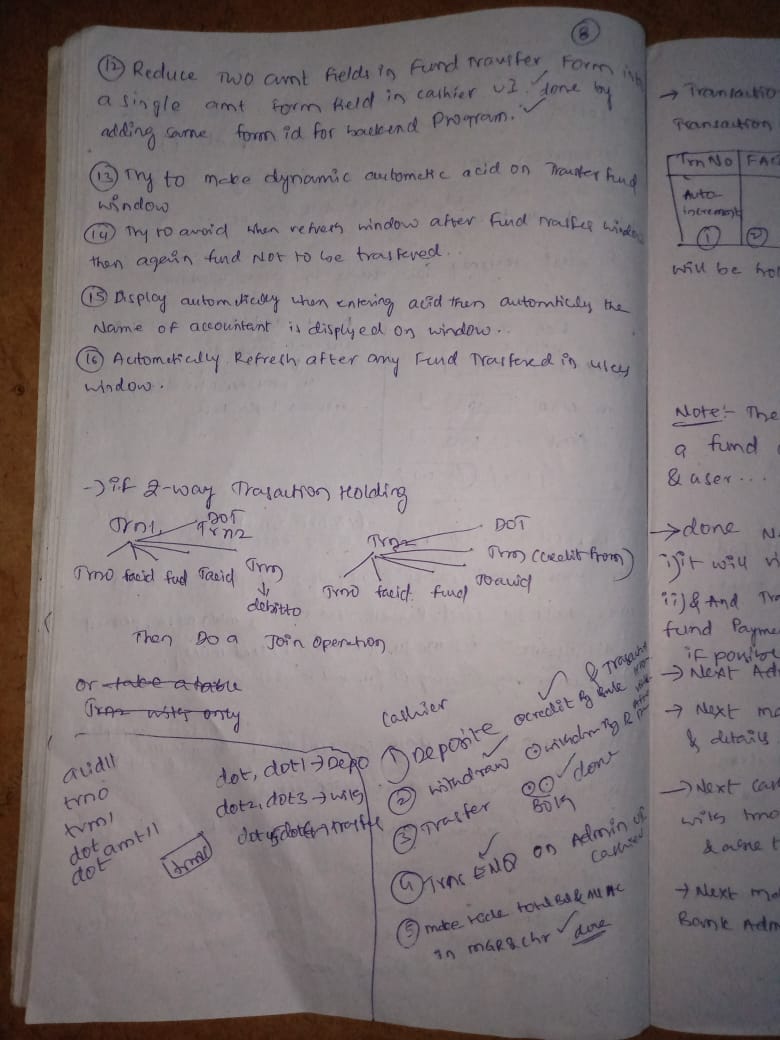 8
12) Reduce Two amt fields in Fund Transfer Form into
a single amt form field in cashier UI. ✓ done by
adding same form id for backend Program. ✓
13) Try to make dynamic automatic acid on Transfer Fund
window
14) Try to avoid when refresh window after fund trasfer window
then again fund Not to be trasfered..
15) Display automatically when entering acid then automticly the
Name of accountant is displyed on window..
16) Automatically Refresh after any Fund Trasfered in users
window.
-> if 2-way Trasaction Holding
Trn1
DOT
Trn2
TrnO facid fud Tacid Trn
↓
debitto
Trn2
DOT
Trn (credit from)
Toacid
TrnO facid fund
Then Do a Join Operation
or take a table
Trn2 only
acid11
trno
trm1
dot amt11
dot
dot, dot1 → Depo
dot2, dot3 →
Cashier
1) Deposite credit By & ✓
2) withdraw ✓
3) Trasfer ✓ done
4) Trns ENQ ✓ on Admin of
cashier
5) make
in & chr ✓ done
→ Transactio
Transaction
Trn No | FAC
Auto-
increment
1 2
will be hol
Note:- The
a fund
& user...
→ done N
i) it will vi
ii) & And Tra
fund Payme
if posible
→ Next Ad
→ Next ma
& details
→ Next Cas
with
→ Next ma
Bank Adm